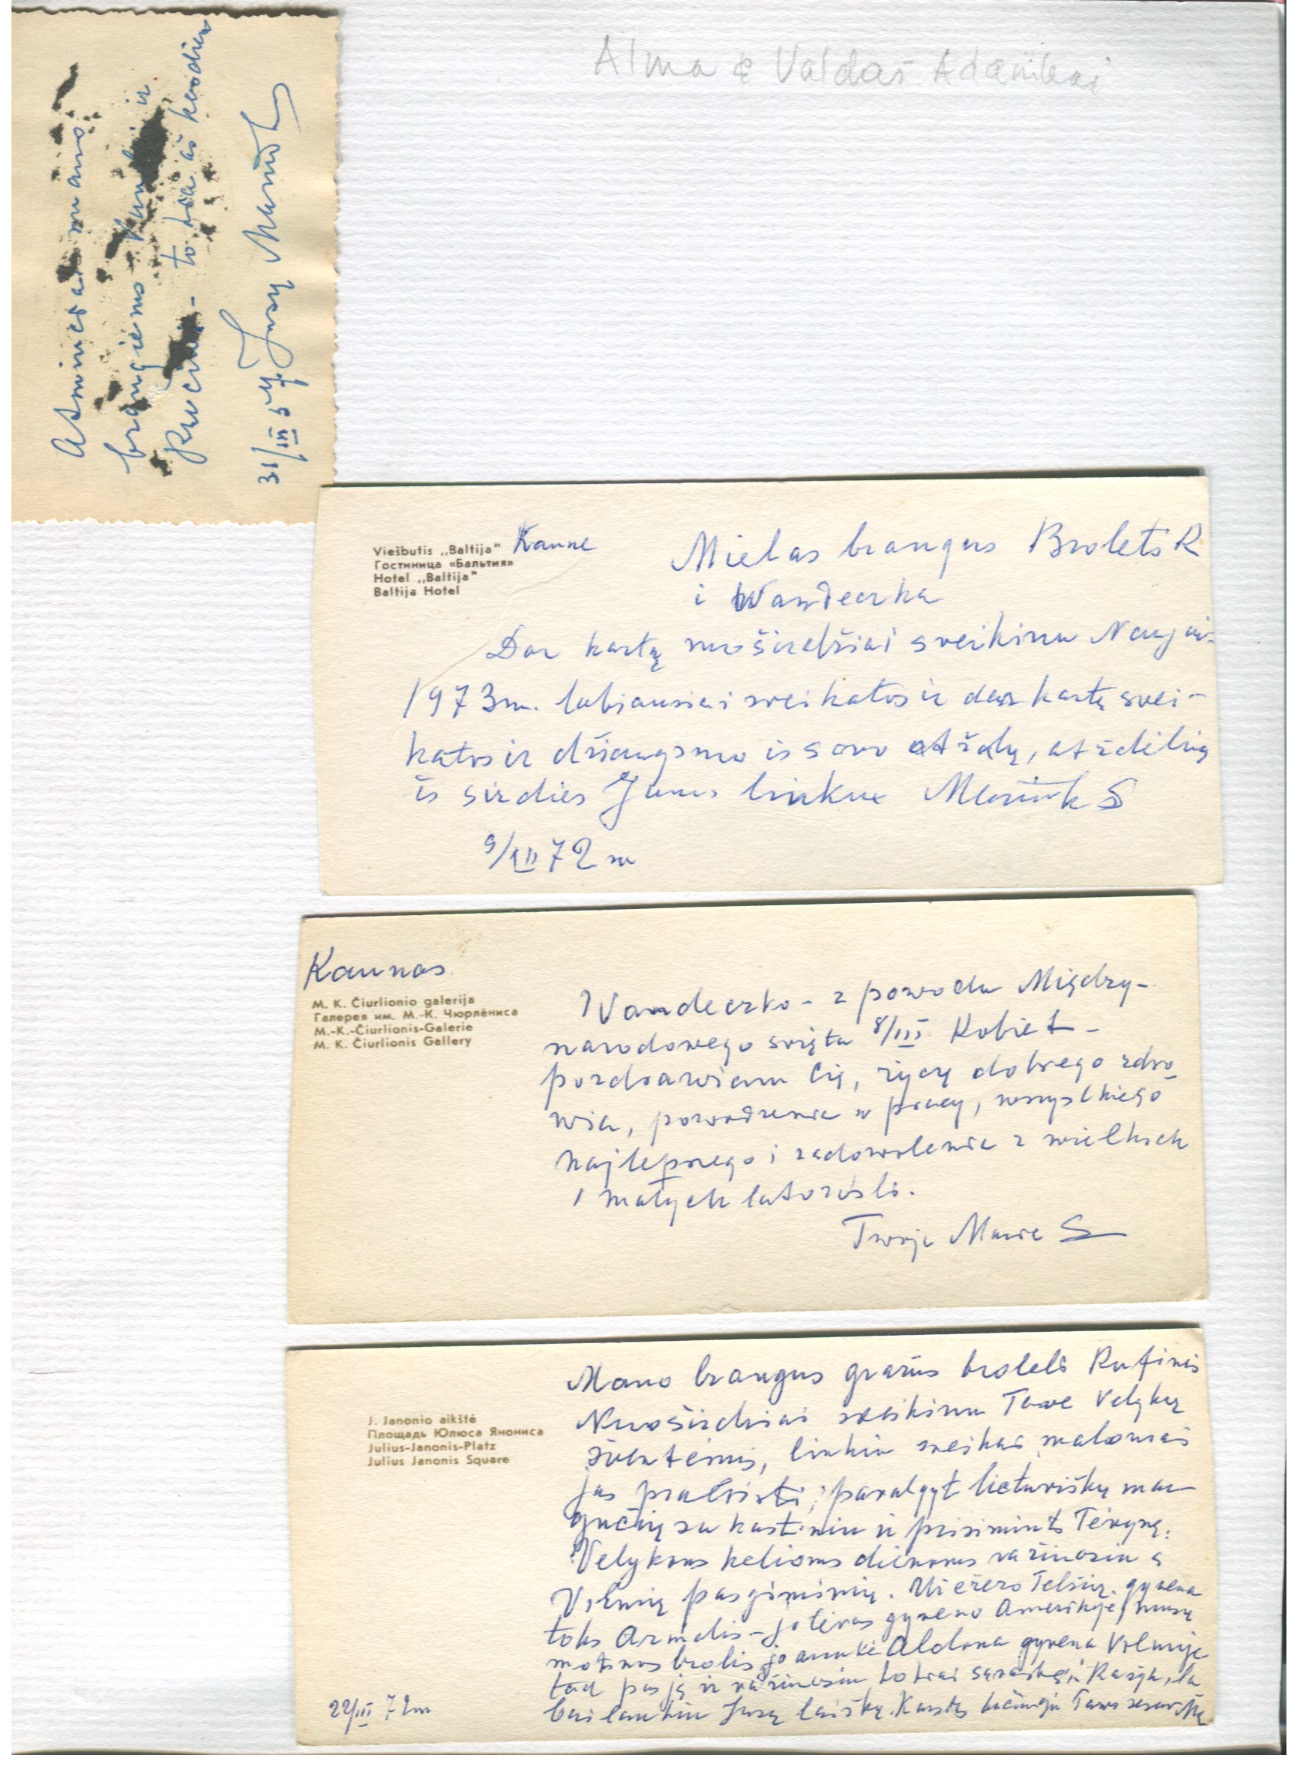 Alma & Valdas Adamkai
Atminčiai mano
brangiems ir
to kia aš kasdien
31/III 57 Jūsų
Viešbutis „Baltija" Kaune
Гостиница «Бальтия»
Hotel „Baltija"
Baltija Hotel
Mielas brangus Brolets R
i Wandeczka
Dar kartą nuoširdžiai sveikinu Naujai-
1973m. labiausiai sveikatos ir dar kartą svei-
katos ir džiaugsmo is savo atžalų, atždėlių
iš sirdies Jums linkux S
9/XII 72 m
Kaunas
M. K. Čiurlionio galerija
Галерея им. М.-К. Чюрлёниса
M.-K.-Čiurlionis-Galerie
M. K. Čiurlionis Gallery
Wandeczko - z powodu Między-
narodowego święta 8/III Kobiet -
pozdrawiam Cię, życzę dobrego zdro-
wia, powodzenia w pracy, wszystkiego
najlepszego i zadowolenia z wielkich
i małych latorośli.
Twoja S
J. Janonio aikštė
Площадь Юлюса Янониса
Julius-Janonis-Platz
Julius Janonis Square
Mano brangus gražus broleli Rufinis
Nuoširdžiai sveikinu Tave Velykų
šventėmis, linkiu sveikai, maloniai
jas praleisti, pavalgyt lietuviškų mar-
gučių su kastiniu ir prisimint Tėvynę.
Velykoms kelioms dienoms važiuosiu į
Vilnių pas giminių. Už ežero Telšių gyvena
toks - jo tėvas gyveno Amerikoje, mūsų
motinos brolis, jo anukė Aldona gyvena Vilniuje
tad pas ją ir važiuosiu
bai laukiu Jūsų laiškų. Karštą Tavo
22/III 72m